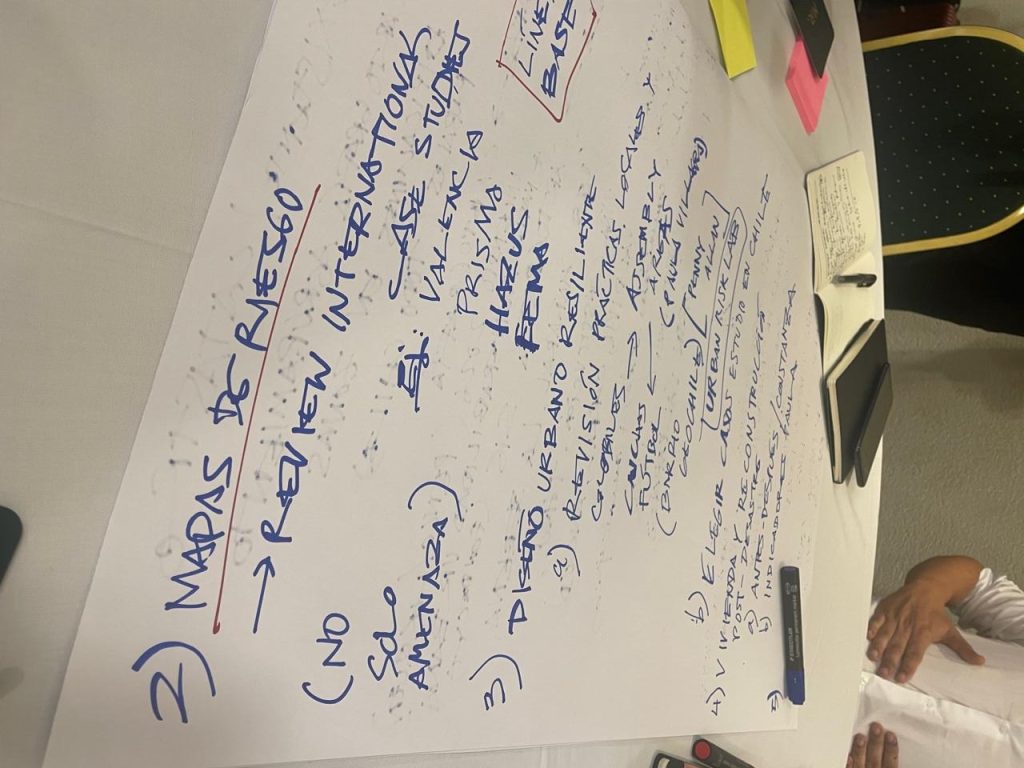 2) MAPAS DE RIESGO
→ REVIEW INTERNATIONAL
(NO SOLO AMENAZA)
CASE STUDIES
Ej: VALENCIA
PRISMA
HAZUS
FEMA
LINE
BASE
3) DISEÑO URBANO RESILIENTE
a) REVISIÓN PRÁCTICAS LOCALES Y
GLOBALES → ASSEMBLY
CANCHAS AREAS
FUTBOL ← (PAULA VILLAGRA)
(ONEMAO
GEOCHILE) [PENNY
ALLAN]
(URBAN RISK LAB)
b) ELEGIR CASOS ESTUDIO EN CHILE
4) VIVIENDA Y RECONSTRUCCIÓN
POST-DESASTRE
a) ANTES-DESPUES / CONSTANZEA
b) INDICADORES PAULA
5)
STAEDTLER